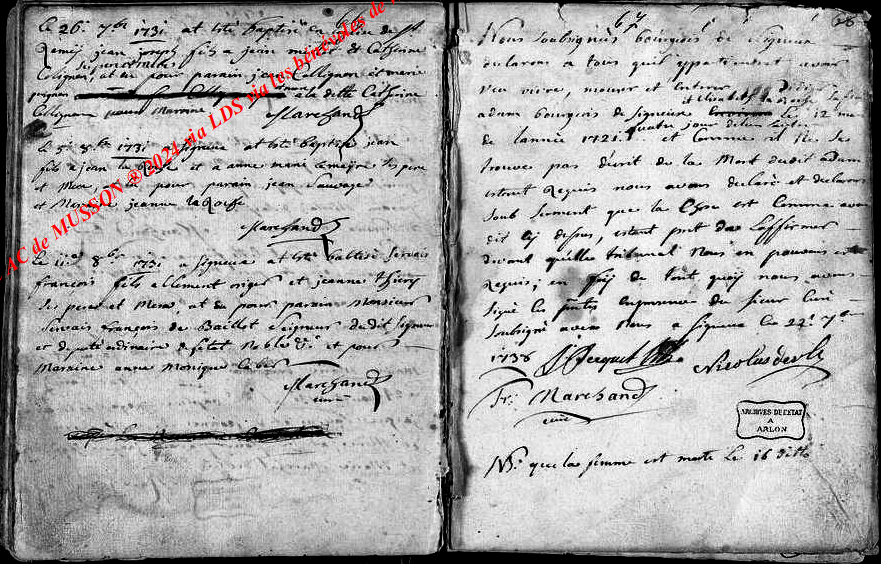 le 26e 7bre 1731 at esté baptisé en de st
Remij jean joseph fils a jean et Catherine
Colignon, et eu pour parain jean Collignon et marie
a la ditte Catherine
Collignon pour Marraine
Marchand
le 8bre 1731 a Signeux at esté baptisé jean
fils a jean la Rosse et a anne marie ses pere
et Mere, et eu pour parain jean Sauvage
et Mereine jeanne la Rosse
Marchand
le 11e 8bre 1731 a Signeux at esté battisé Servais
françois fils a Clement niger et jeanne thiery
ses pere et Mere, at eu pour parain Monsieur
Servais françois de Baillet Seigneur dudit Signeux
et deputé ordinaire de l'etat Noble &c et pour
Marraine anne Monique
Marchand
curé
67
68
Nous Soubsignés bourgois de Signeux
declarons a tous qu'il appartiendrat avoir
veu vivre, mourir et enterrer
et Elisabeth la Rosse sa
adam bourgois de Signeux le 12 mai
quatre jour
de l'année 1721. et Comme il Ne se
trouve pas décrit de la Mort dudit adam
estant Requis nous avons declaré et declarons
soub Serment que la Chose est Comme avant
dit cij desus, estant pret de L'affirmer
devant quelle tribunal Nous en pouvions estre
Requis; en foij de tout quoij nous avons
Signé les presentes du Sieur Curé
Soubsigné avec Nous a Signeux les 22e 7bre
1738 J Jacquet Nicolas
Fr: Marchand
curé
ARCHIVES DE L'ETAT
A
ARLON
NB: que la femme est morte le 16 ditto
AC de MUSSON @ 2024 via LDS via les bénévoles de